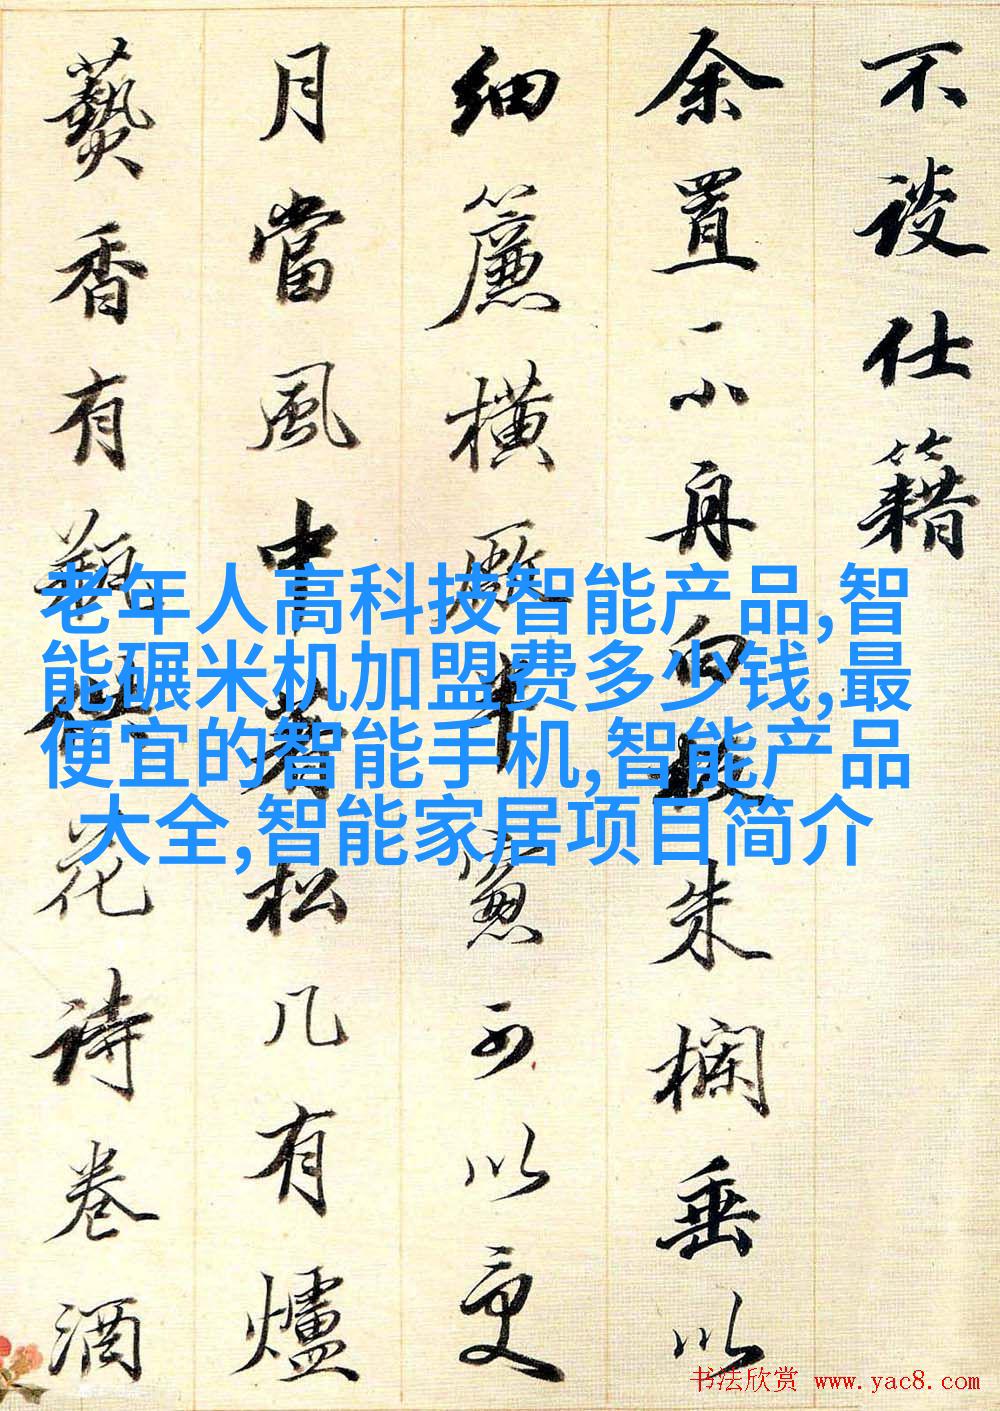 不談仕籍
余置一小舟白板朱欄垂以
細簾横厰半窻可以受
月當風中著松几有爐
爇香有瓶供花詩卷酒
老年人高科技智能产品,智
能碾米机加盟费多少钱,最
便宜的智能手机,智能产品
大全,智能家居项目简介
书法欣赏 www.yac8.com